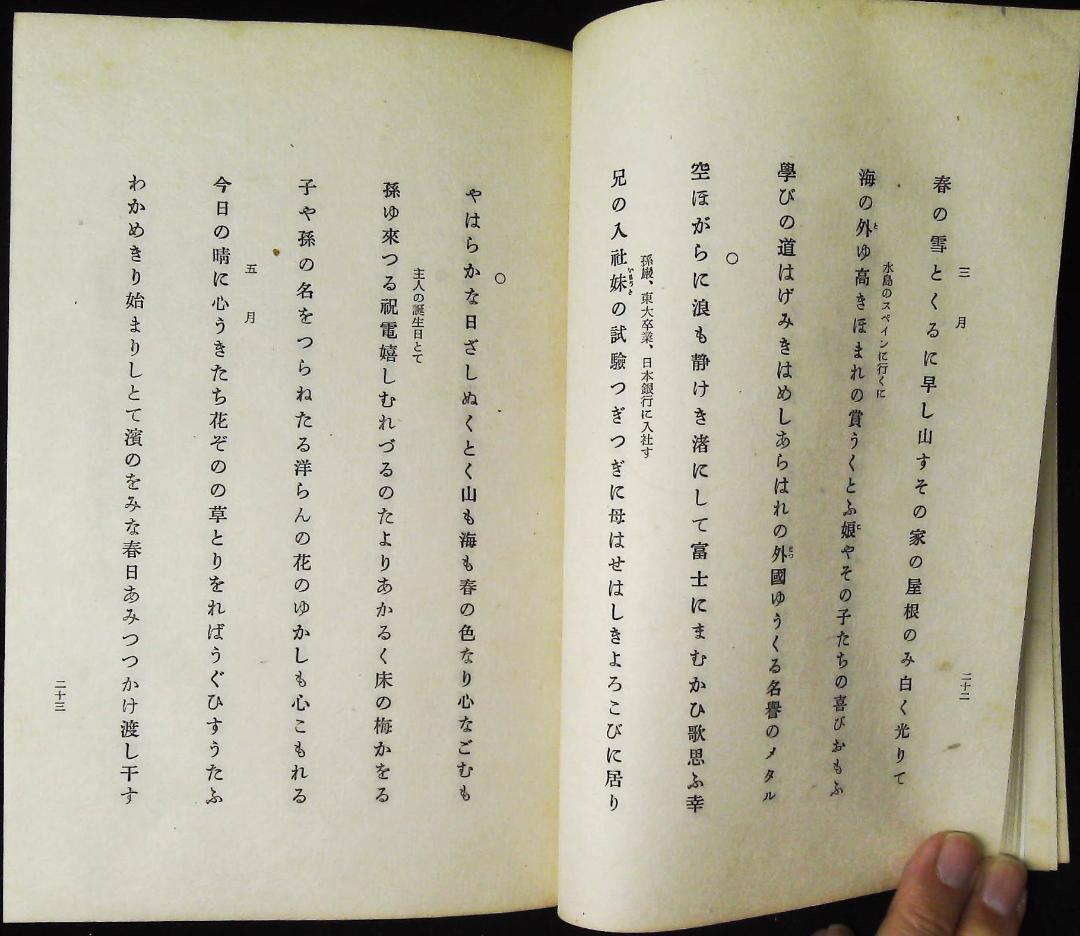 三月
春の雪とくるに早し山すその家の屋根のみ白く光りて
水島のスペインに行くに
海の外ゆ高きほまれの賞うくとふ娘やその子たちの喜びおもふ
學びの道はげみきはめしあらはれの外國ゆうくる名譽のメタル
○
空ほがらに浪も静けき渚にして富士にまむかひ歌思ふ幸
孫巌、東大卒業、日本銀行に入社す
兄の入社妹の試驗つぎつぎに母はせはしきよろこびに居り
二十二
○
やはらかな日ざしぬくとく山も海も春の色なり心なごむも
主人の誕生日とて
孫ゆ來つる祝電嬉しむれづるのたよりあかるく床の梅かをる
子や孫の名をつらねたる洋らんの花のゆかしも心こもれる
五月
今日の晴に心うきたち花ぞのの草とりをればうぐひすうたふ
わかめきり始まりしとて濱のをみな春日あみつつかけ渡し干す
二十三